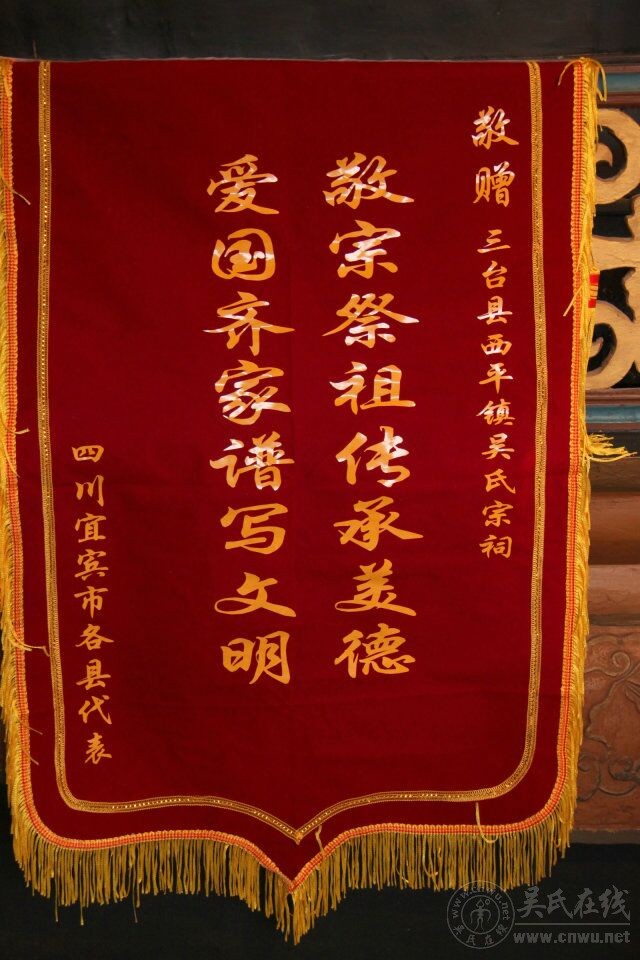 敬赠 三台县西平镇吴氏宗祠
敬宗祭祖传承美德
爱国齐家谱写文明
四川宜宾市各县代表
吴氏在线
www.cnwu.net